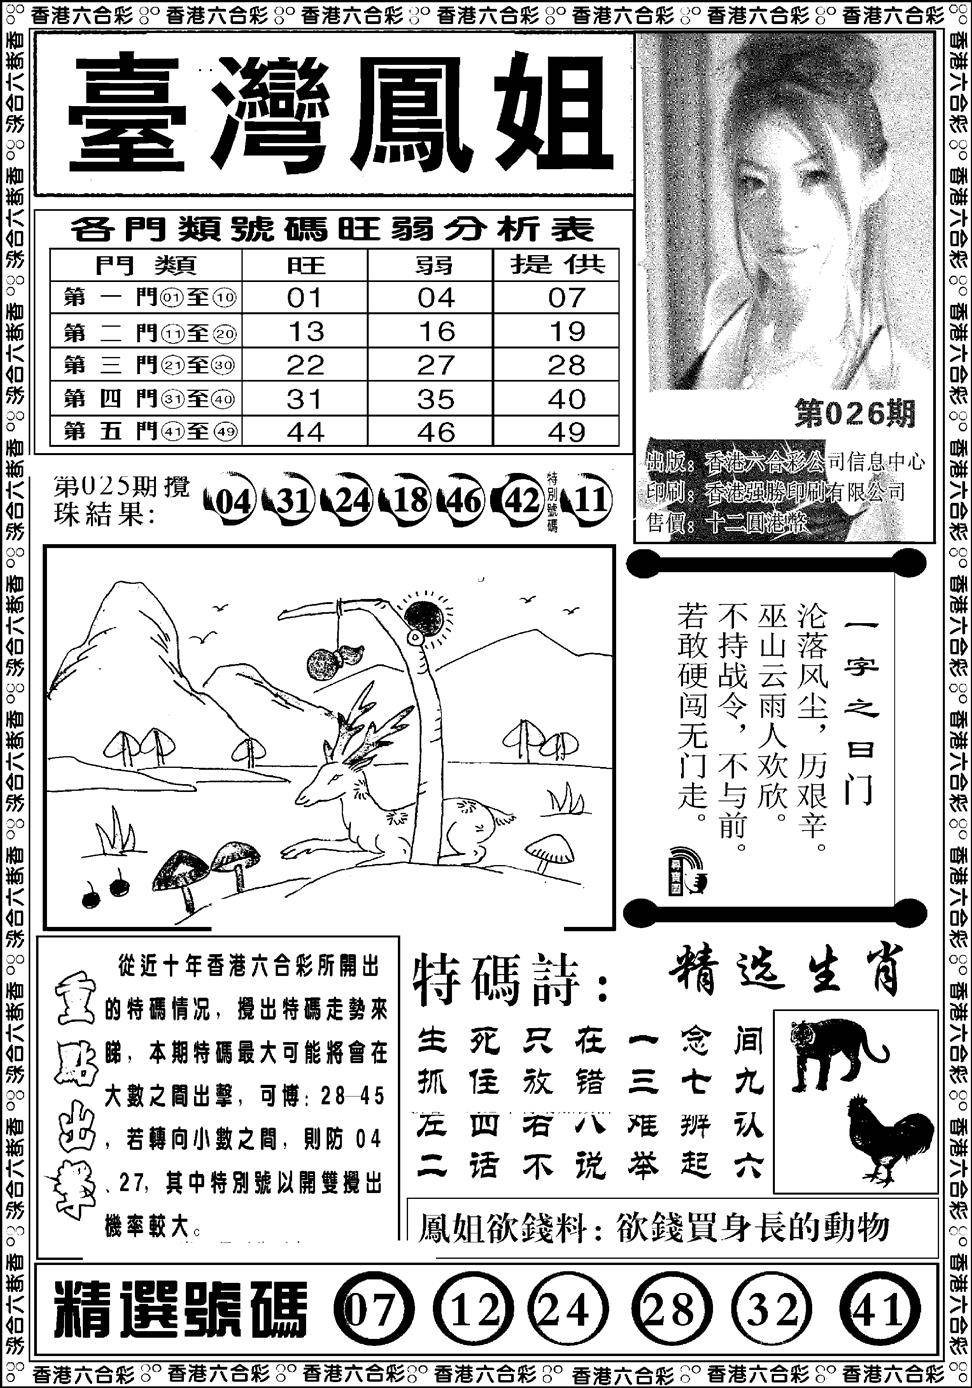 香港六合彩 香港六合彩 香港六合彩 香港六合彩 香港六合彩 香港六合彩 香港六合彩
臺灣鳳姐
各門類號碼旺弱分析表
門類 旺 弱 提供
第一門01至10 01 04 07
第二門11至20 13 16 19
第三門21至30 22 27 28
第四門31至40 31 35 40
第五門41至49 44 46 49
第026期
出版：香港六合彩公司信息中心
印刷：香港强勝印刷有限公司
售價：十二圓港幣
第025期攪
珠結果：
04 31 24 18 46 42 特別號碼 11
一字之曰门
沦落风尘，历艰辛。
巫山云雨人欢欣。
不持战令，不与前。
若敢硬闯无门走。
重點出擊
從近十年香港六合彩所開出
的特碼情况，攪出特碼走勢來
睇，本期特碼最大可能將會在
大數之間出擊，可博：28—45
，若轉向小數之間，則防 04
、27，其中特別號以開雙攪出
機率較大。
特碼詩：
生死只在一念间
抓住放错三七九
左四右八难辨认
二话不说举起六
精选生肖
鳳姐欲錢料：欲錢買身長的動物
精選號碼 07 12 24 28 32 41
香港六合彩 香港六合彩 香港六合彩 香港六合彩 香港六合彩 香港六合彩 香港六合彩